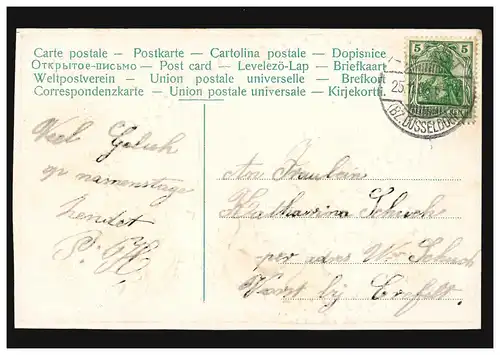 Carte postale — Postkarte — Cartolina postale — Dopisnice
Открытое-письмо — Post card — Levelező-Lap — Briefkaart
Weltpostverein — Union postale universelle — Brefkort
Correspondenzkarte — Union postale universale — Kirjekortti
5 5
25.11.
(BZ. DÜSSELDORF)
Veel Geluk
op namenstage
zendet
P. H.
An Fraulein
Katharina Schuch
per adres Wr Schuch
Vorst by Crefeld.